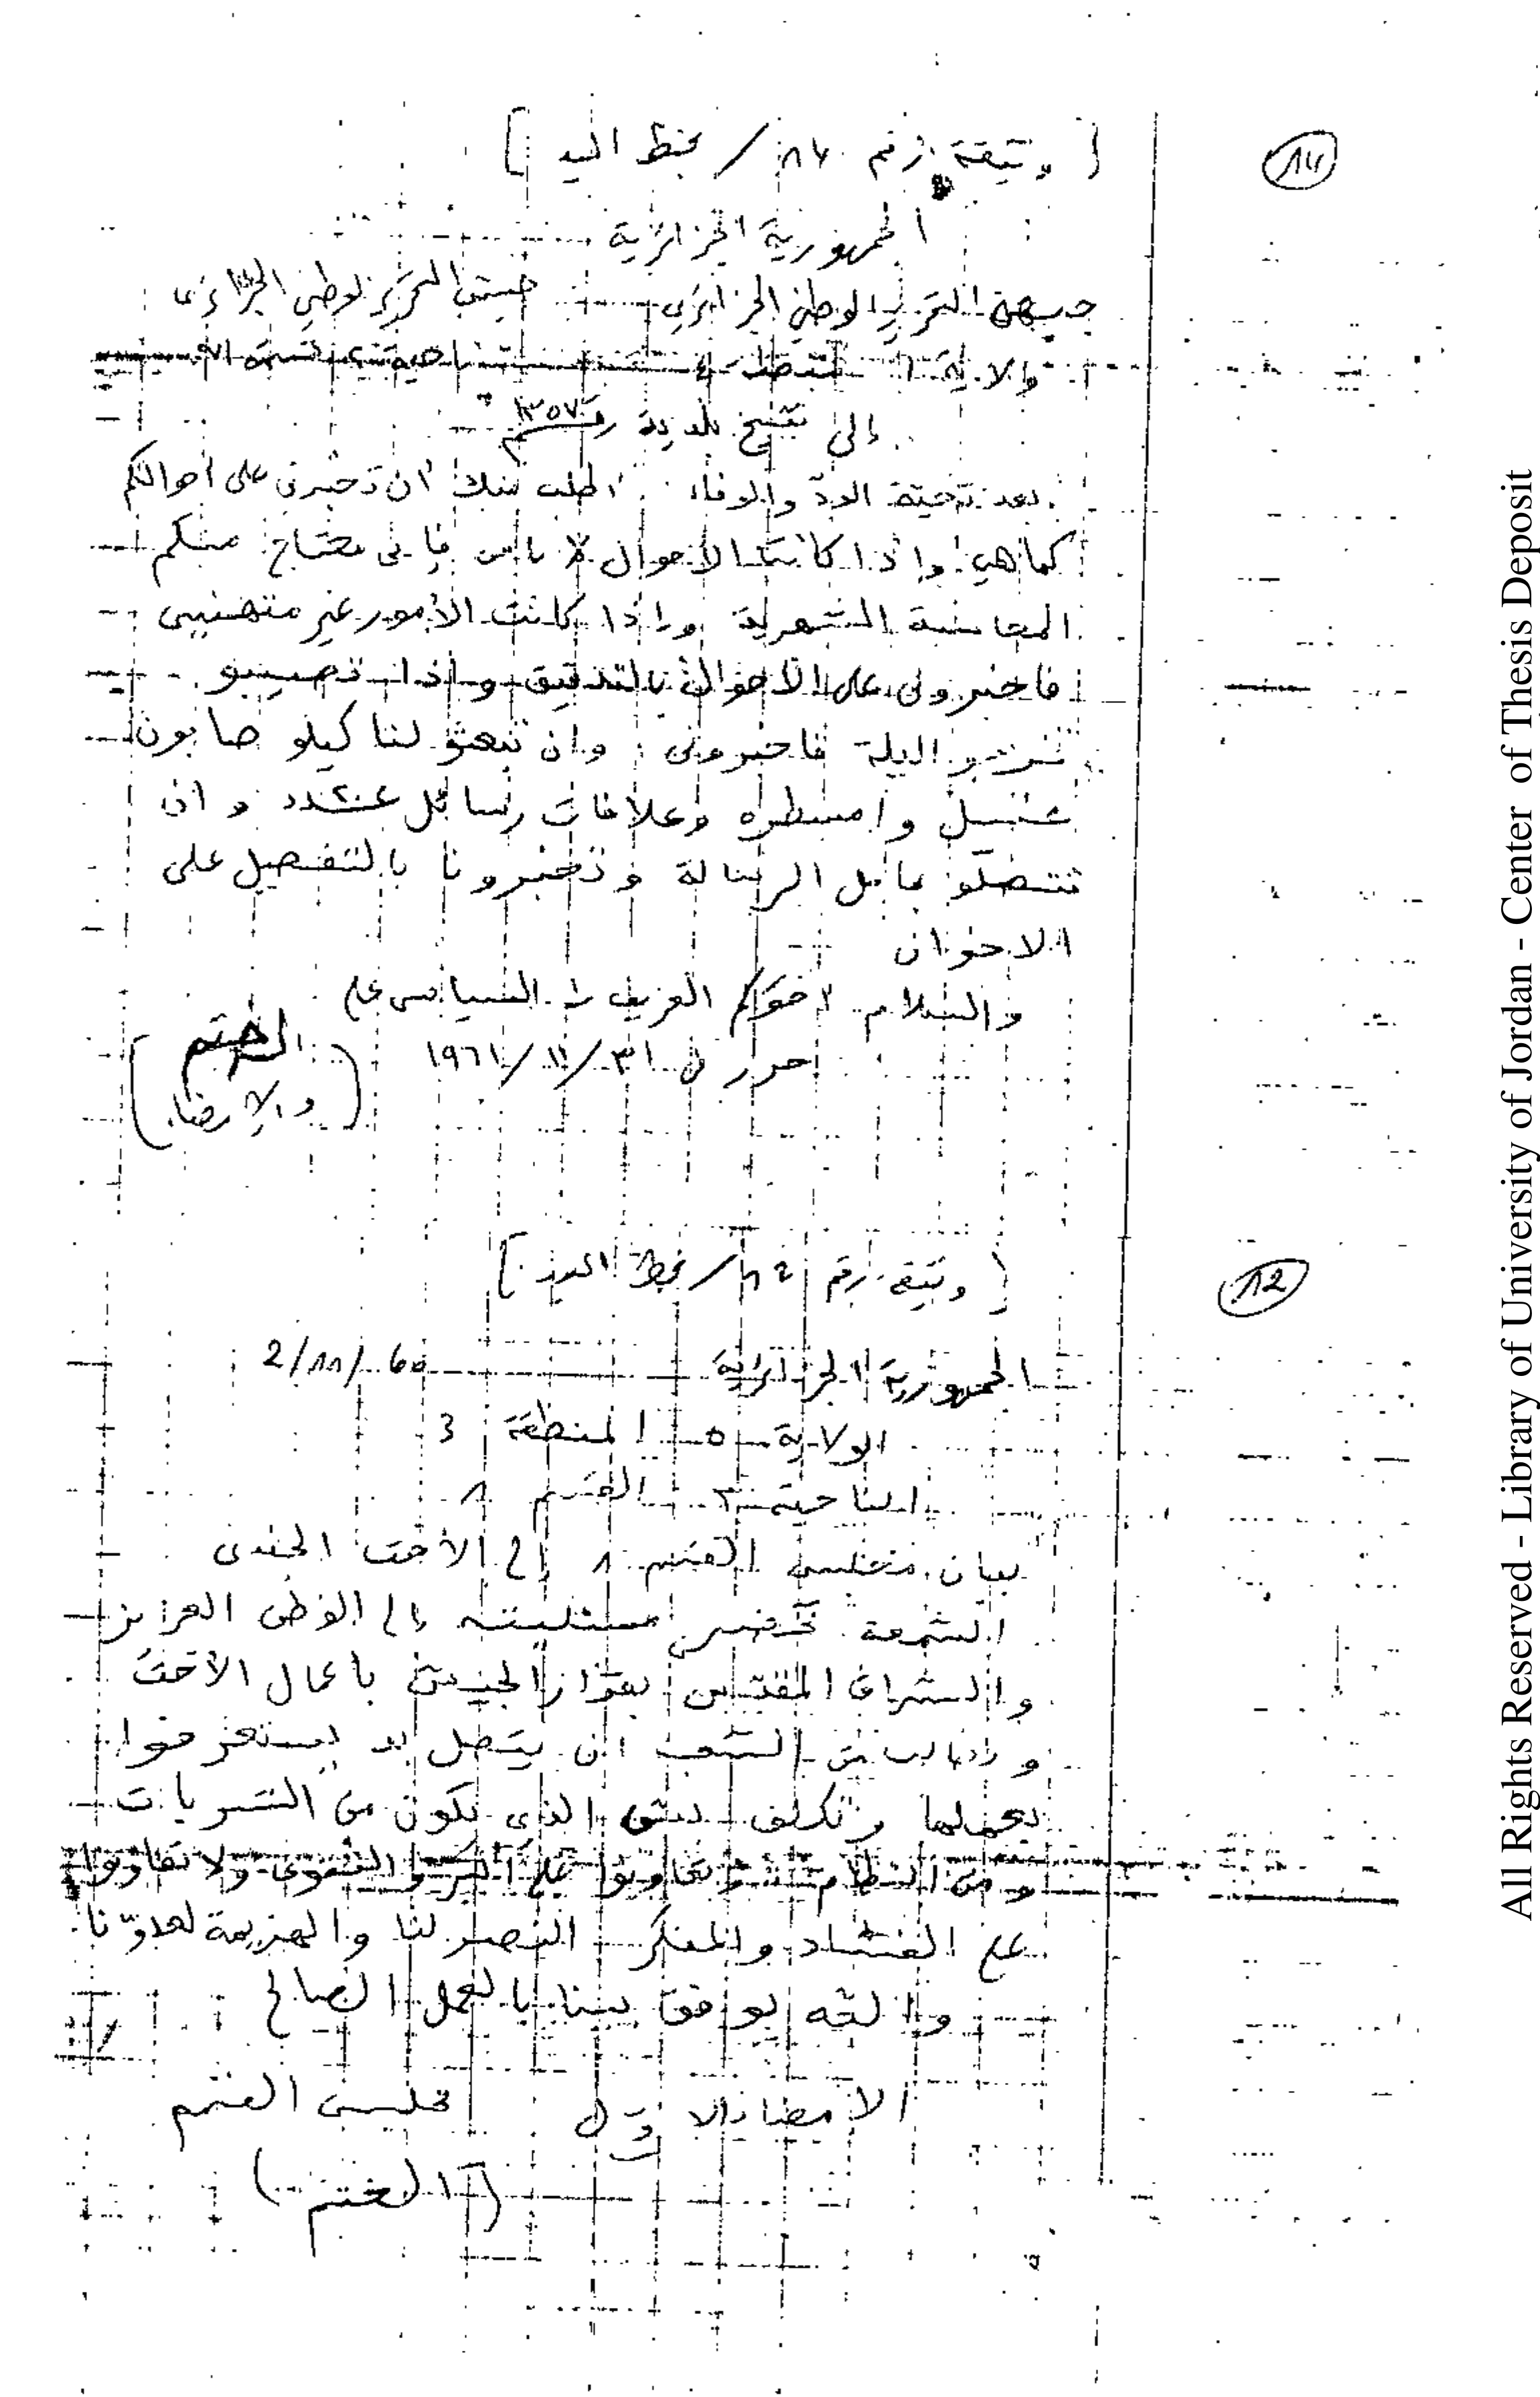 [ وثيقة رقم 14 / بخط اليد ]
14
الجمهورية الجزائرية
جبهة التحرير الوطني الجزائري جيش التحرير الوطني الجزائري
والاية 1 ناحية
إلى شيخ بلدية رقم ١٣٥٧
بعد تحية الودّ والوفاء اطلب منك ان تخبرني على احوالكم
كما هي واذا كانت الأحوال لا باس فإني محتاج منكم
المحاسبة الشهرية واذا كانت الأمور غير متهنيين
فاخبروني على الاحوال بالتدقيق واذا تصيبو
اليلة فاخبروني وان تبعثو لنا كيلو صابون
غسيل وامسطره وغلافات رسائل عدد وان
تتفضلو بحامل الرسالة وتخبرونا بالتفصيل على
الاخوان
والسلام اخوكم العريف السياسي علي
حرر في ٣١/١١/١٩٦١
( الختم
والإمضاء )
[ وثيقة رقم 12 / بخط اليد ]
12
الجمهورية الجزائرية 2/11/60
الولاية ٥ المنطقة 3
الناحية ٣ القسم 1
بيان مجلس القسم 1 إلى الأخت الجندى
الشمعة مسئليته إلى الوطن العزيز
والشراف المقدس بقرار الجيش بأعمال الأخت
و الشعب ان يتصل بد
بعملها وتكلف الذي تكون من السريات
و من النظام وتعاونوا على البر والتقوى ولا تعاونوا
على الفساد والمنكر النصر لنا والهزيمة لعدوّنا
والله يوفق بيننا بالعمل الصالح
الامضاء الاوّل مجلس القسم
( الختم )
All Rights Reserved - Library of University of Jordan - Center of Thesis Deposit